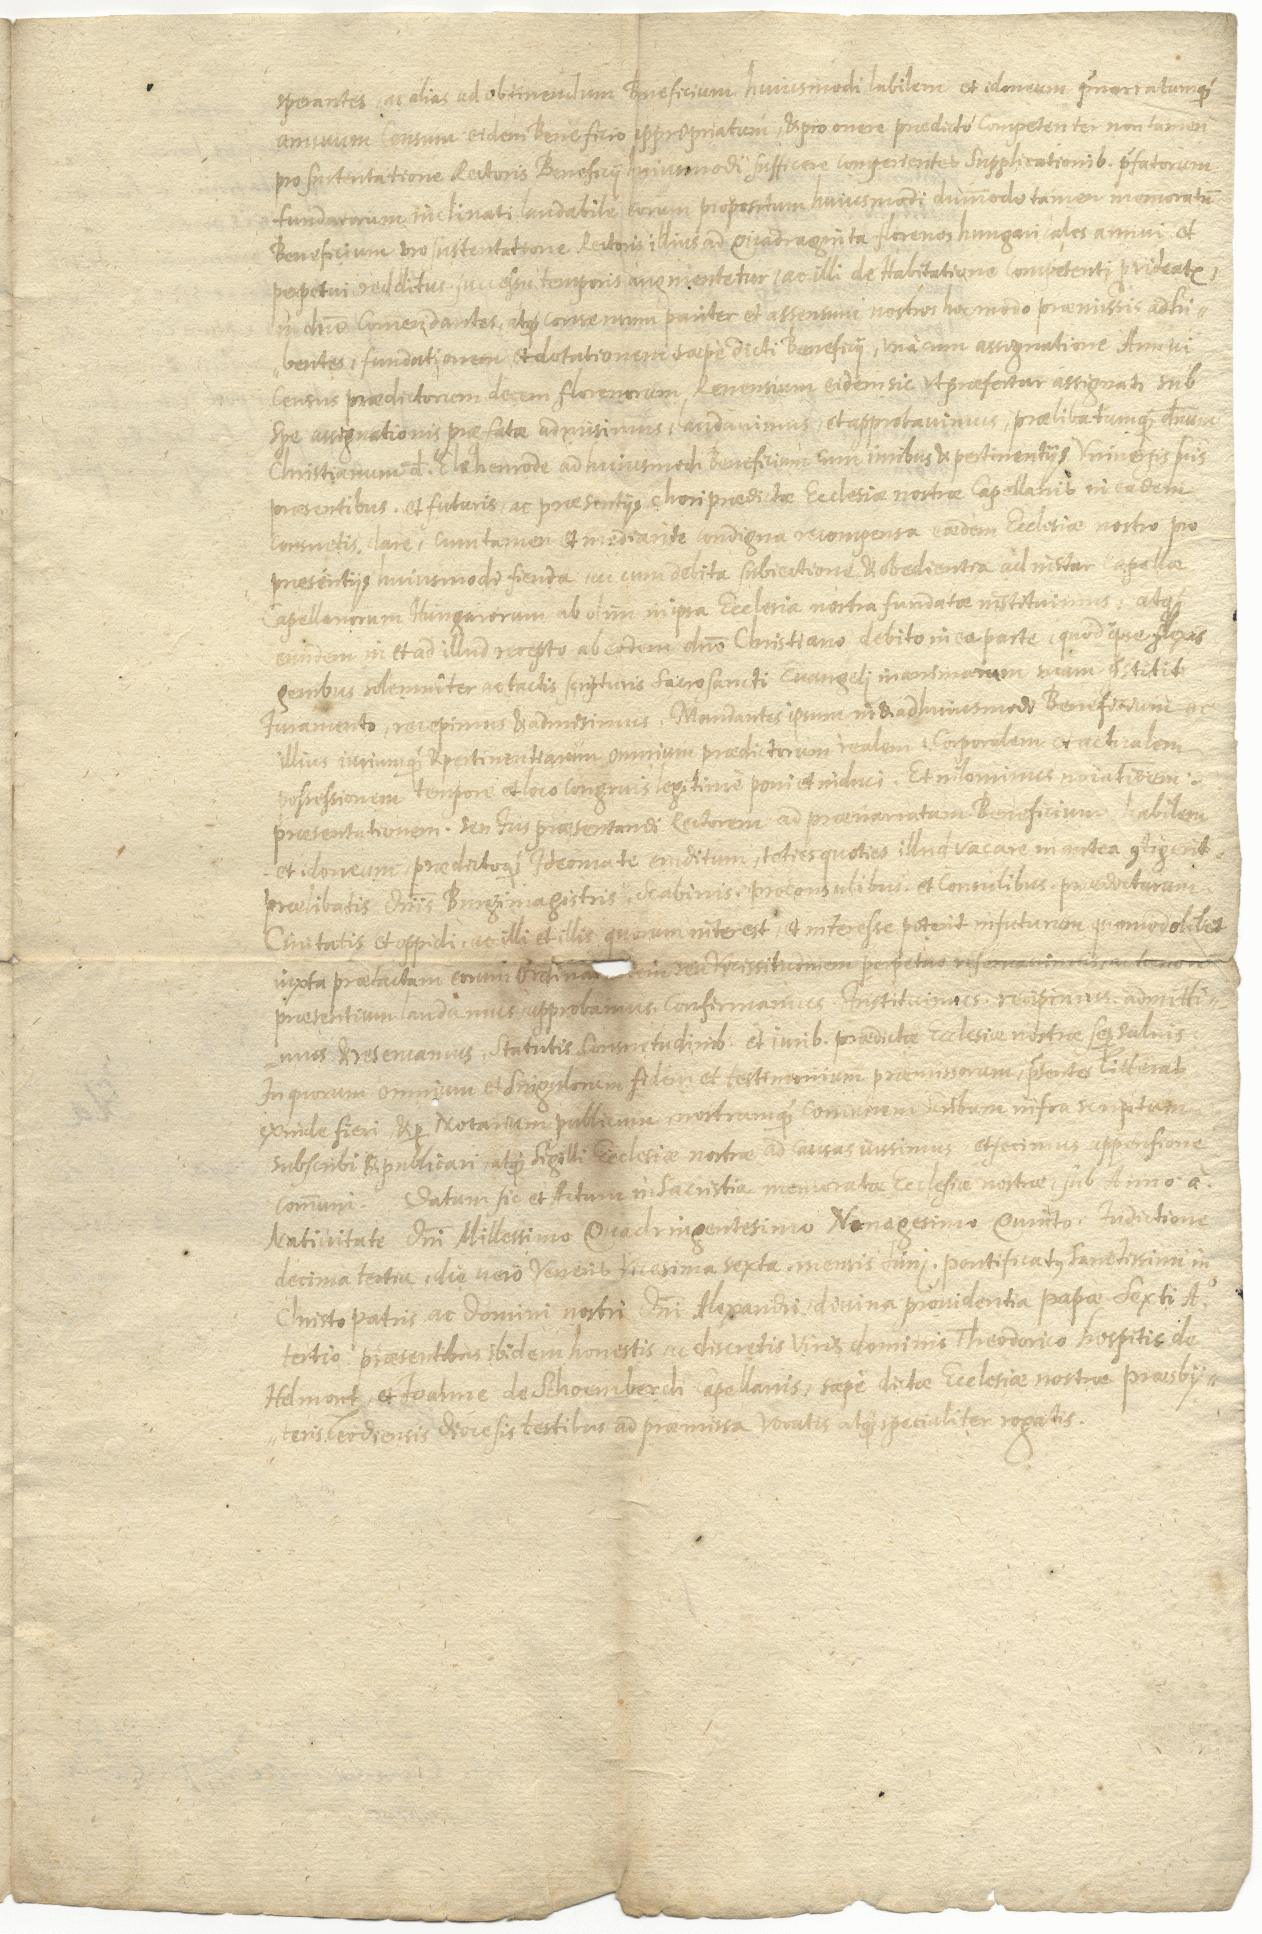 sperantes, ac alias ad obtinendum Beneficium huiusmodi habilem et idoneum, p̃narratumq́
annuum Censum eidem Beneficio appropriatum, & pro onere prædicto Competenter non tamen
pro sustentatione Rectoris Beneficij huiusmodi sufficere comperientes Supplicationib. p̃fatorum
fundatorum inclinati laudabile eorum propositum huiusmodi dum̃odo tamen memoratũ
Beneficium pro sustentatione Rectoris illius ad Quadraginta florenos hungaricales annui et
perpetui redditus successu temporis augmentetur, ac illi de Habitatione Competenti prideatr,
in dño Comendantes, atq́ consensum pariter et assensum nostros hoc modo præmissis adhi„
„bentes, fundationem et dotationem sæpè dicti Beneficij, vnà cum assignatione Annui
Census prædictorum decem florenorum Renensium eidem sic vt præfertur assignati sub
Spe assignationis præfatæ admisimus, laudauimus, et approbauimus, prælibatumq́ dñum
Christianum d. ad huiusmodi Beneficium cum iuribus & pertinentijs Vniuersis suis
præsentibus. et futuris, ac præsentijs chori prædictæ Ecclesiæ nostræ Capellanis in eadem
consuetis, dare, cum tamen et mediante condigna recompensa eædem Ecclesiæ nostræ pro
præsentijs huiusmodi fienda, ac cum debita subiectione & obedientia ad instar Capellæ
Capellanorum Hungarorum ab olim in ipsa Ecclesia nostra fundatæ instituimus, atq́
eundem in et ad illud recepto ab eodem dño Christiano debito in ea parte, quod que flexis
genibus solemniter ac tactis scripturis Sacrosancti Euangelij in manibus præstitit
Iuramento, recepimus & admisimus. Mandantes ipsum in & ad huiusmodi Beneficium ac
illius iuriumq́ & pertinentiarum omnium prædictorum realem, Corporalem et actualem
possessionem tempore et loco congruis legitimè poni et induci. Et nilominus
præsentationem. seu Jus præsentandi Rectorem ad prænarratum Beneficium habilem
et idoneum, prædictoq́ Ideomate eruditum, toties quoties illud vacare in antea 9tigerit.
prælibatis Dñis Burgimagistris, Scabinis. proconsulibus. et Consulibus. prædictarum
Ciuitatis et oppidi, ac illi et illis, quorum interest, et interesse poterit infuturum quomodolibet
iuxta prætactam eorum Ordinationem seu Vicissitudinem perpetuo reseruauimus, ac tenore
præsentium laudamus, approbamus. Confirmamus. Instituimus. recipimus. admitti„
„mus & reseruamus, Statutis Consuetudinib. et iurib. prædictæ Ecclesiæ nostræ sep saluis
In quorum omnium et Singulorum fidem et testimonium præmissorum, p̃sentes Litteras
exinde fieri, & p Notarium publicum, nostrumq́ comunem scribam infra scriptum
subscribi & publicari, atq́ Sigilli Ecclesiæ nostræ ad Causas iussimus et fecimus appensione
com̃uni. Datum sic et Actum in Sacristia memoratæ Ecclesiæ nostræ, sub Anno à.
Natiuitate Dñi Millessimo Quadringentesimo Nonagesimo Quinto. Indictione
decima tertia, die vero Veneris vicesima sexta mensis Junij. pontificatus Sanctissimi in
Christo patris ac Domini nostri Dñi Alexandri, diuina prouidentia papæ Sexti Aº.
tertio. præsentibus ibidem honestis ac discretis Viris dominis Theodorico hospitis de
Helmont, et Joanne de Schoemberch Capellanis, sæpè dictæ Ecclesiæ nostræ Præsby„
„teris Leodiensis diocesis testibus ad præmissa Vocatis atq́ specialiter rogatis.